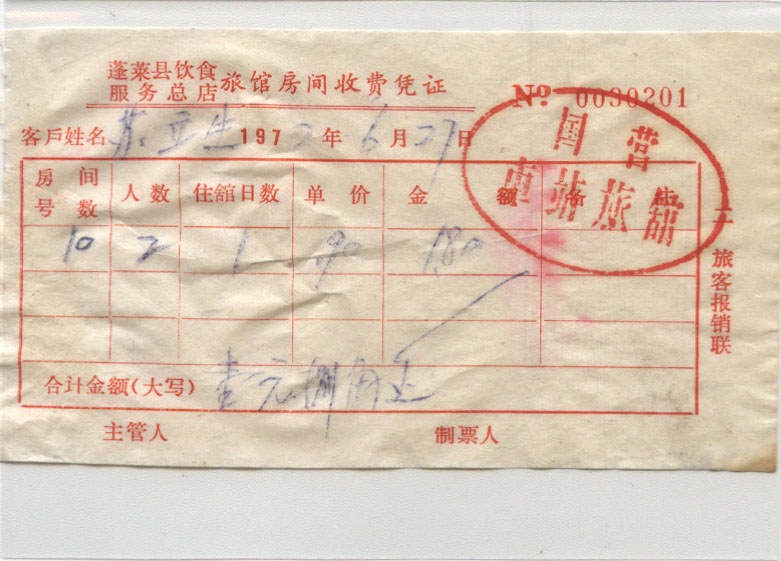 蓬莱县饮食
服务总店
旅馆房间收费凭证
№ 0030201
国营
车站旅舘
客戶姓名 苏 生 1972年6月27日
房间号数 人数 住舘日数 单价 金额 备注
10 2 1 .90 1.80
合计金额(大写) 壹元捌角正
主管人 制票人
二 旅客报销联